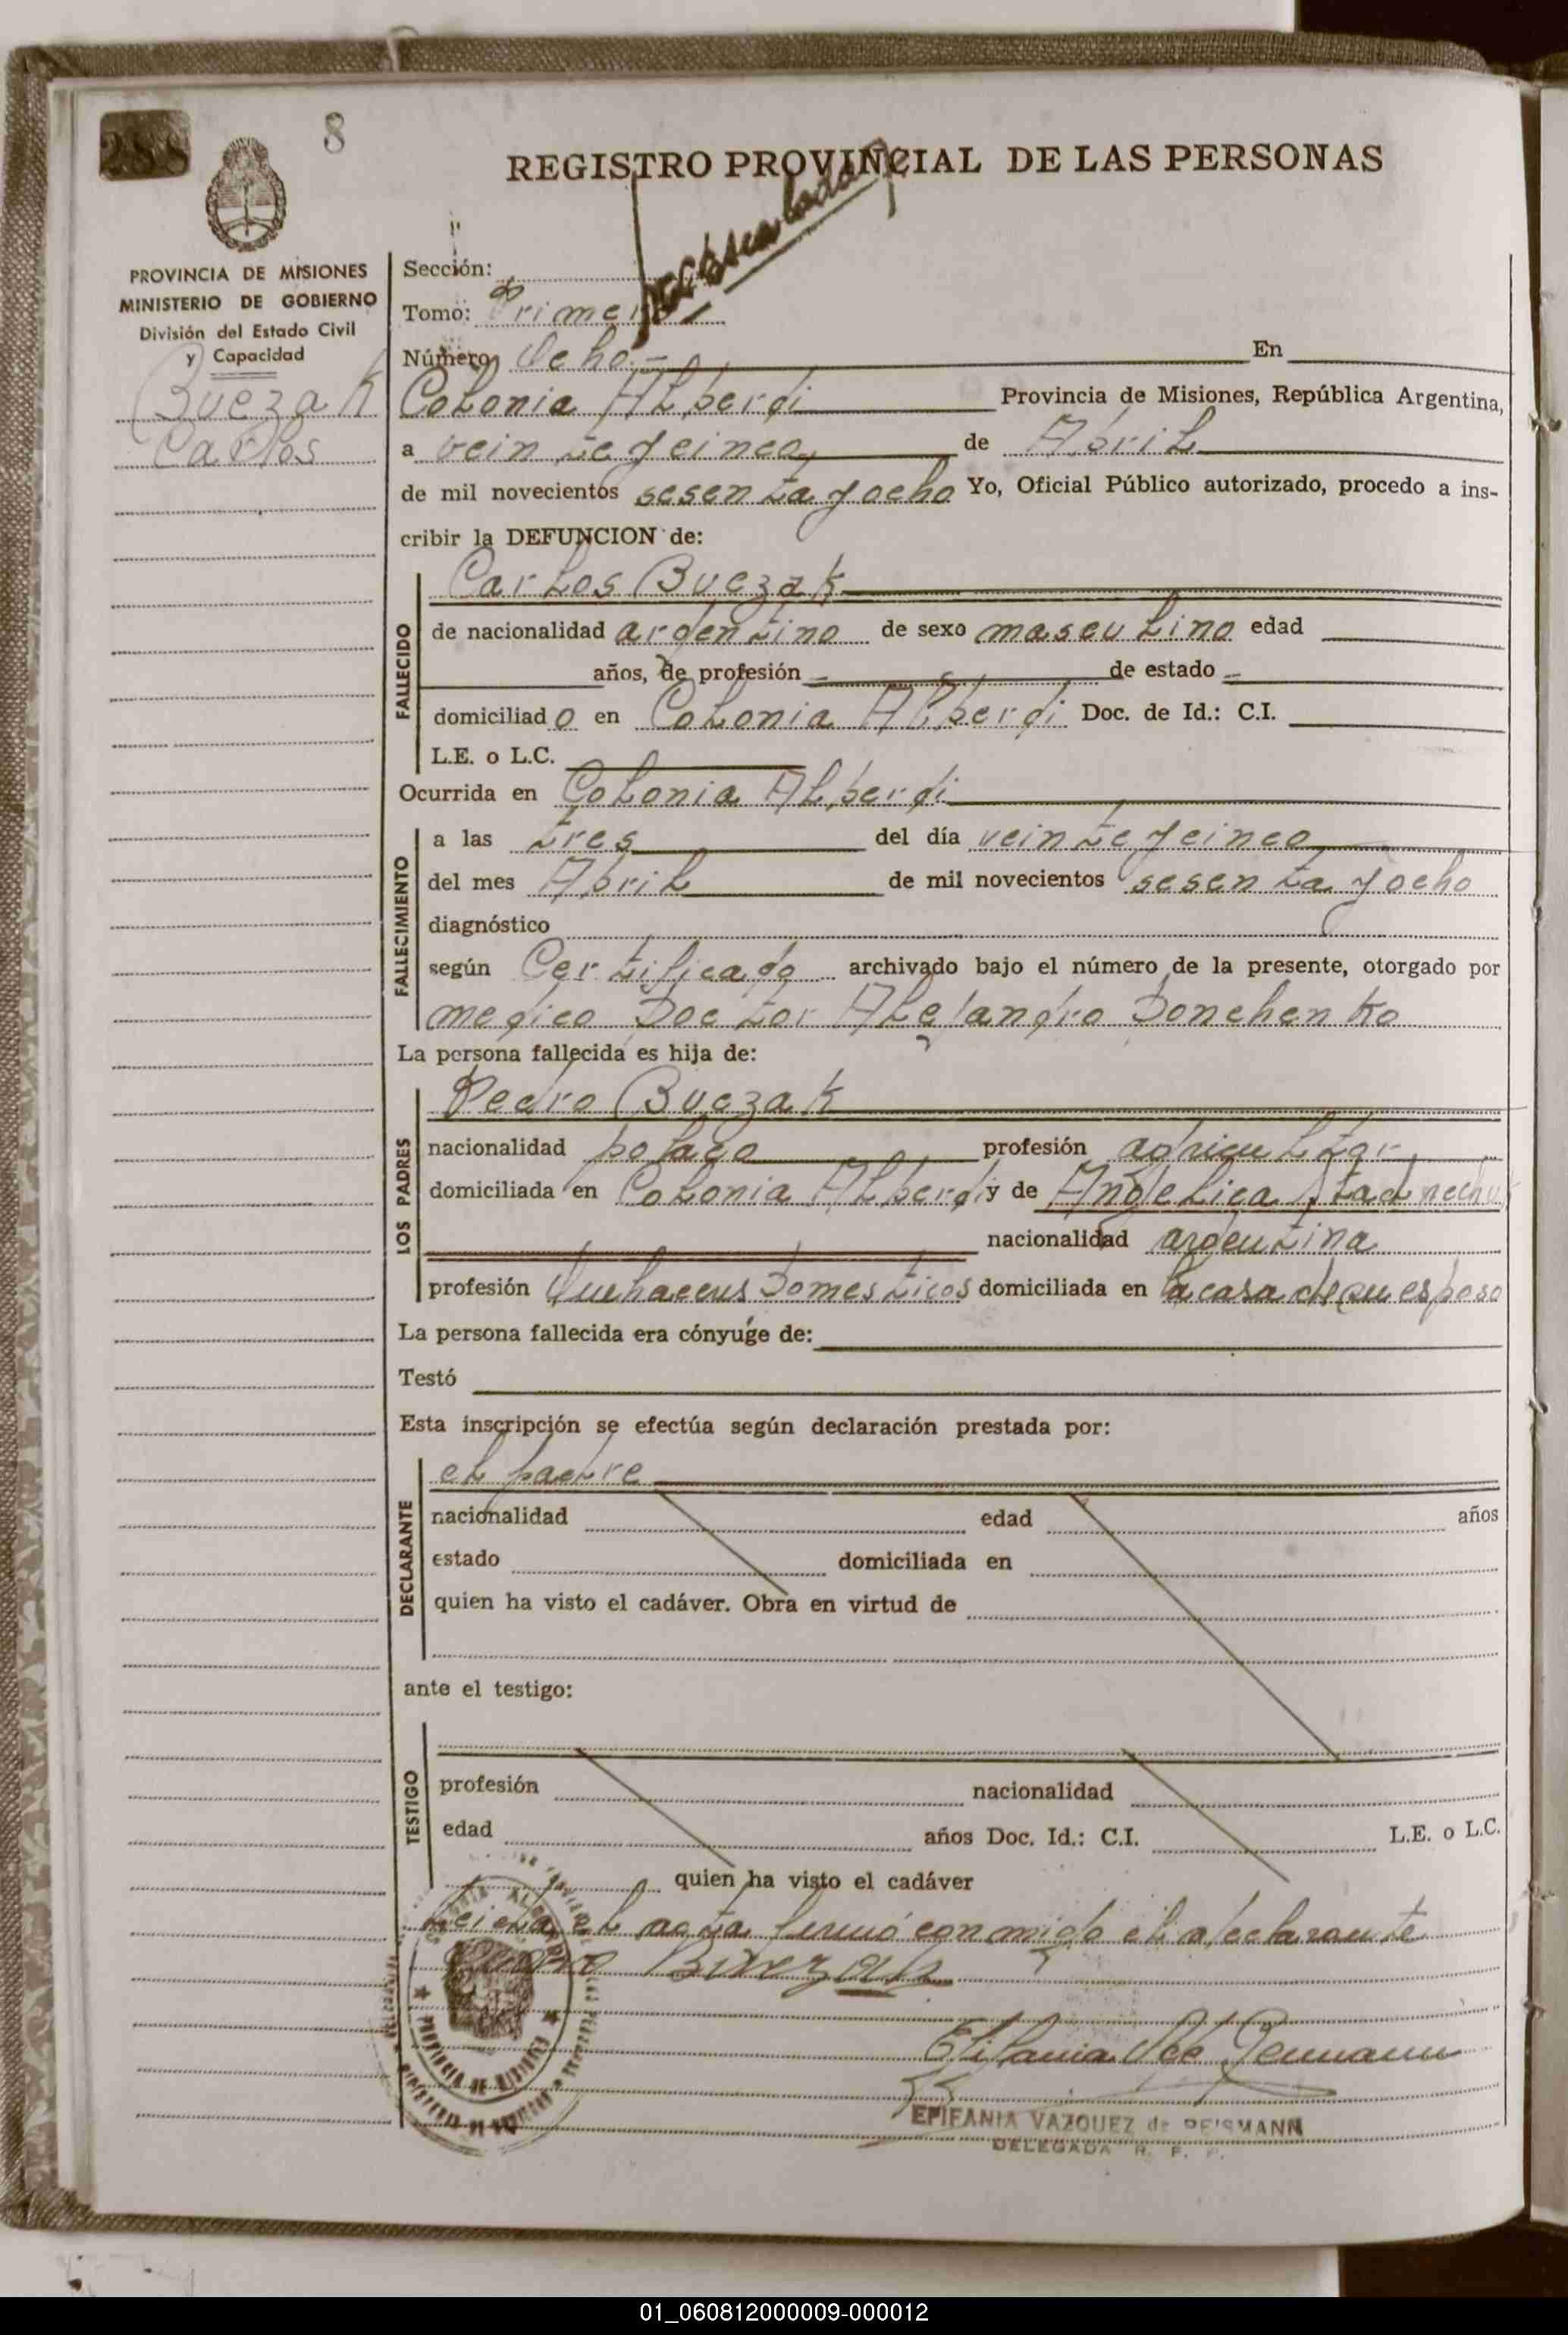 288
8
REGISTRO PROVINCIAL DE LAS PERSONAS
PROVINCIA DE MISIONES
MINISTERIO DE GOBIERNO
División del Estado Civil
y Capacidad
Buczak
Carlos
Sección:
Tomo: Primero
Número Ocho.- En
Colonia Alberdi Provincia de Misiones, República Argentina,
a veinte y cinco de Abril
de mil novecientos sesenta y ocho Yo, Oficial Público autorizado, procedo a ins-
cribir la DEFUNCION de:
FALLECIDO
Carlos Buczak
de nacionalidad argentino de sexo masculino edad
años, de profesión de estado
domiciliado en Colonia Alberdi Doc. de Id.: C.I.
L.E. o L.C.
Ocurrida en Colonia Alberdi
FALLECIMIENTO
a las tres del día veinte y cinco
del mes Abril de mil novecientos sesenta y ocho
diagnóstico
según Certificado archivado bajo el número de la presente, otorgado por
medico Doctor Alejandro Donchenko
La persona fallecida es hija de:
LOS PADRES
Pedro Buczak
nacionalidad polaco profesión agricultor
domiciliada en Colonia Alberdi y de Angelica
nacionalidad argentina
profesión Quehaceres Domesticos domiciliada en la casa de su esposo
La persona fallecida era cónyuge de:
Testó
Esta inscripción se efectúa según declaración prestada por:
DECLARANTE
el padre
nacionalidad edad años
estado domiciliada en
quien ha visto el cadáver. Obra en virtud de
ante el testigo:
TESTIGO
profesión nacionalidad
edad años Doc. Id.: C.I. L.E. o L.C.
quien ha visto el cadáver
Leida el acta firmó conmigo el declarante
PROVINCIA DE MISIONES
EPIFANIA VAZQUEZ de REISMANN
DELEGADA R. P. P.
01_060812000009-000012